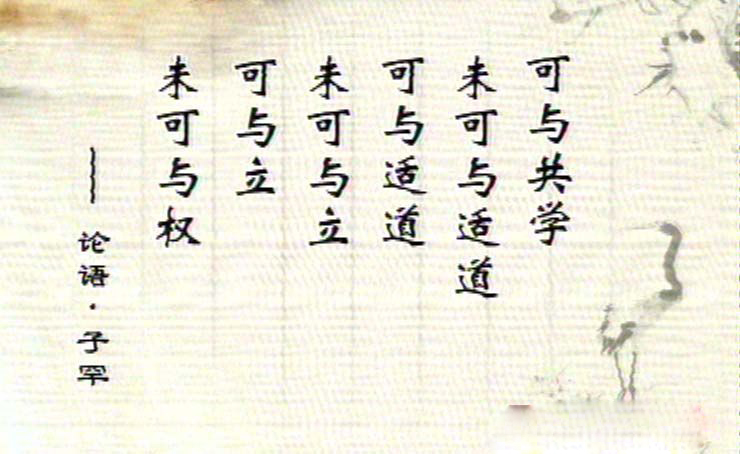 可与共学
未可与适道
可与适道
未可与立
可与立
未可与权
——论语·子罕